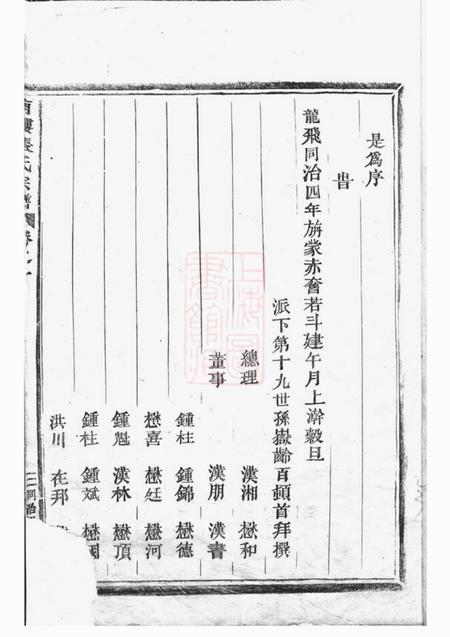 是爲序
旹
龍飛同治四年旃蒙赤奮若斗建午月上澣穀旦
派下第十九世孫嶽齡百頓首拜撰
總理 漢湘 懋和
董事 漢朋 漢書
鍾柱 鍾錦 懋德
懋喜 懋廷 懋河
鍾魁 漢林 懋頂
鍾柱 鍾斌 懋國
洪川 在邦
氏宗譜 卷之一